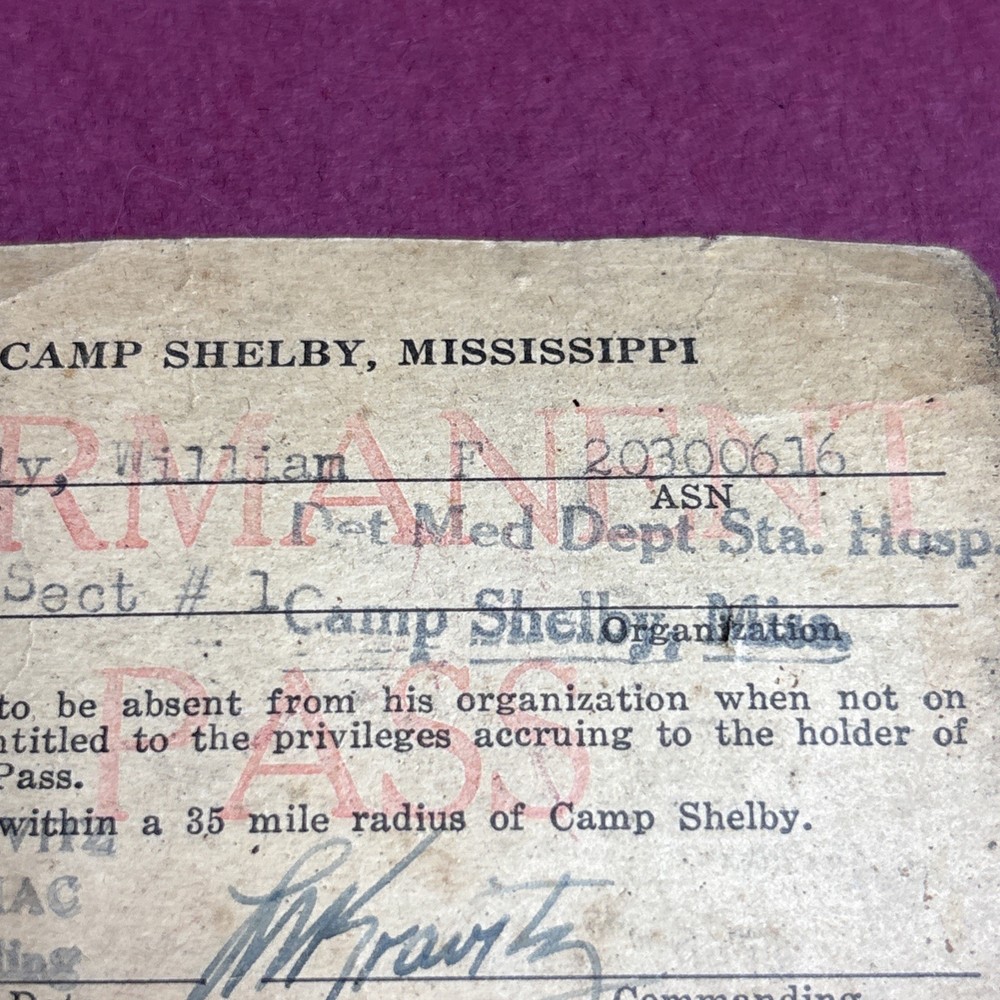 CAMP SHELBY, MISSISSIPPI
PERMANENT
ly, William F 20300616
ASN
Det Med Dept Sta. Hosp.
Sect # 1 Camp Shelby, Miss.
Organization
to be absent from his organization when not on
ntitled to the privileges accruing to the holder of
PASS
Pass.
within a 35 mile radius of Camp Shelby.
VITZ
MAC
ding
Kravitz
Det
Commanding